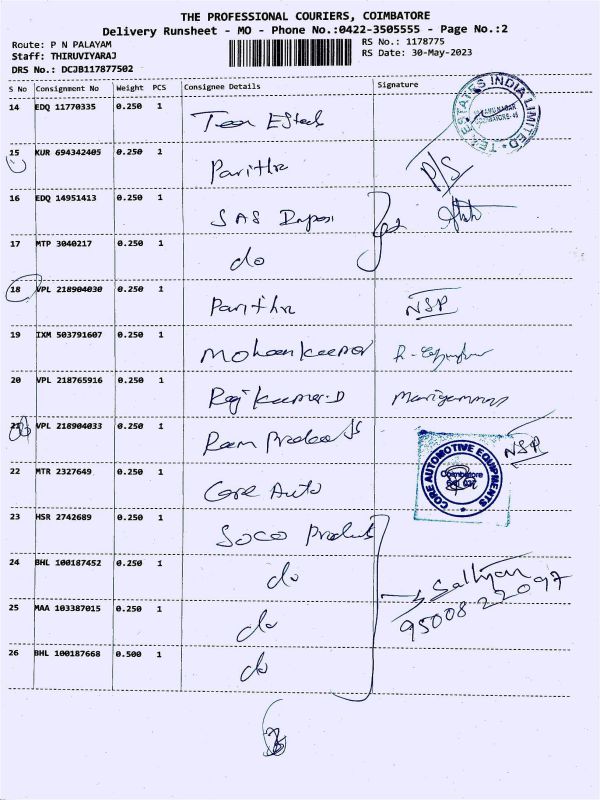 THE PROFESSIONAL COURIERS, COIMBATORE
Delivery Runsheet - MO - Phone No.:0422-3505555 - Page No.:2
Route: P N PALAYAM
RS No.: 1178775
Staff: THIRUVIYARAJ
RS Date: 30-May-2023
DRS No.: DCJB117877502
S No Consignment No Weight PCS Consignee Details Signature
14 EDQ 11770335 0.250 1
ESTATES INDIA LIMITED
15 KUR 694342405 0.250 1 Parithi
P/S
16 EDQ 14951413 0.250 1 SAS
17 MTP 3040217 0.250 1 do
18 VPL 218904030 0.250 1 Parithi NSP
19 IXM 503791607 0.250 1 Mohankumar
20 VPL 218765916 0.250 1 Rajkumar.D Mariyammal
21 VPL 218904033 0.250 1 Ram NSP
22 MTR 2327649 0.250 1 Core Auto
CORE AUTOMOTIVE EQUIPMENTS
Coimbatore
23 HSR 2742689 0.250 1 SOCO Products
24 BHL 100187452 0.250 1 do
Sathyan
95008 22097
25 MAA 103387015 0.250 1 do
26 BHL 100187668 0.500 1 do